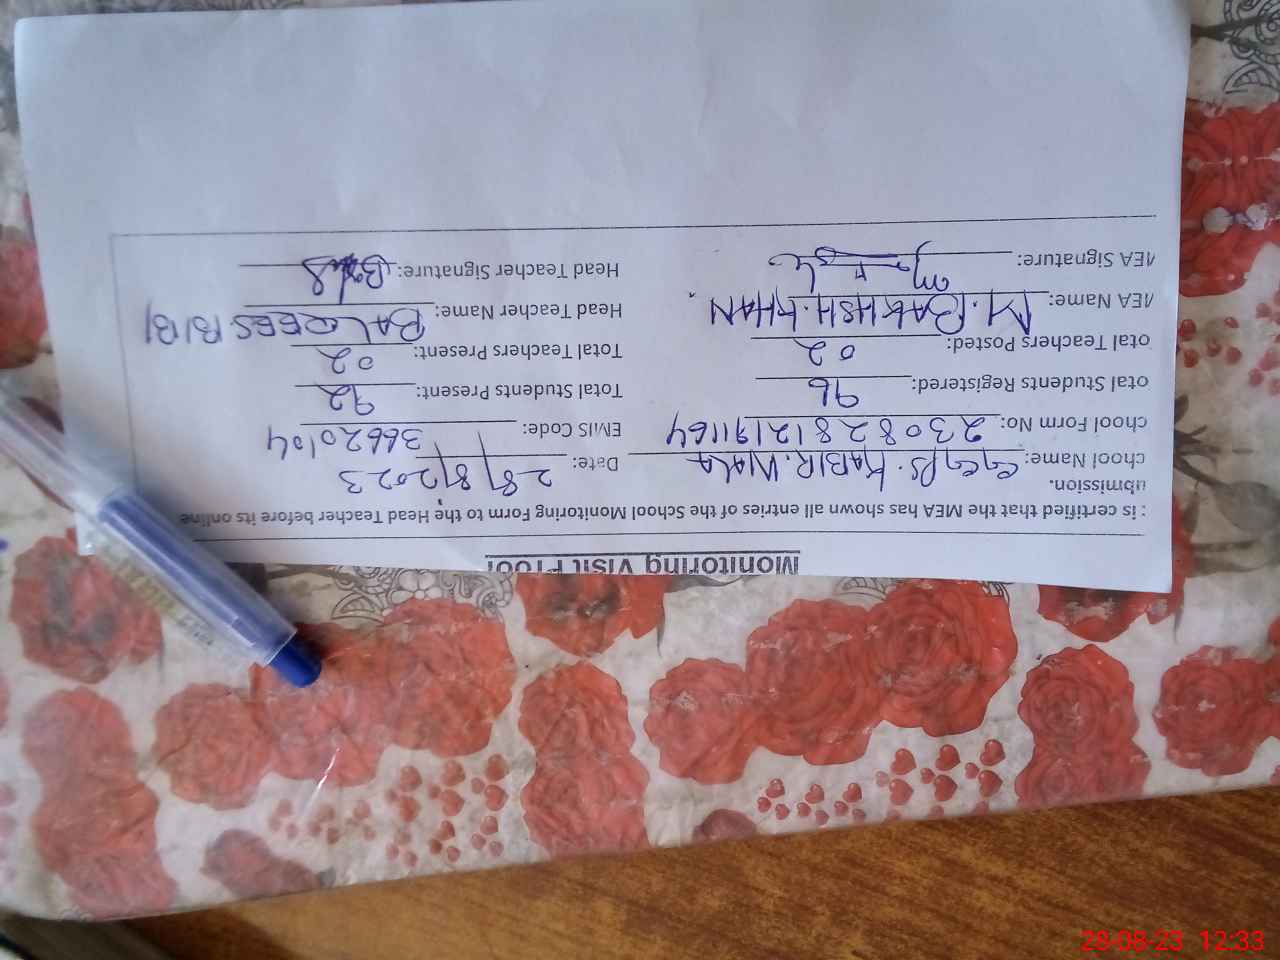 Monitoring Visit Proof
: is certified that the MEA has shown all entries of the School Monitoring Form to the Head Teacher before its online
ubmission.
chool Name: GGPS. KABIR. WALA Date: 28/8/2023
chool Form No: 23082812191164 EMIS Code: 36620104
otal Students Registered: 96 Total Students Present: 92
otal Teachers Posted: 02 Total Teachers Present: 02
MEA Name: M. BAKHSH. KHAN. Head Teacher Name: BALQEES BIBI
MEA Signature: Head Teacher Signature:
28-08-23 12:33